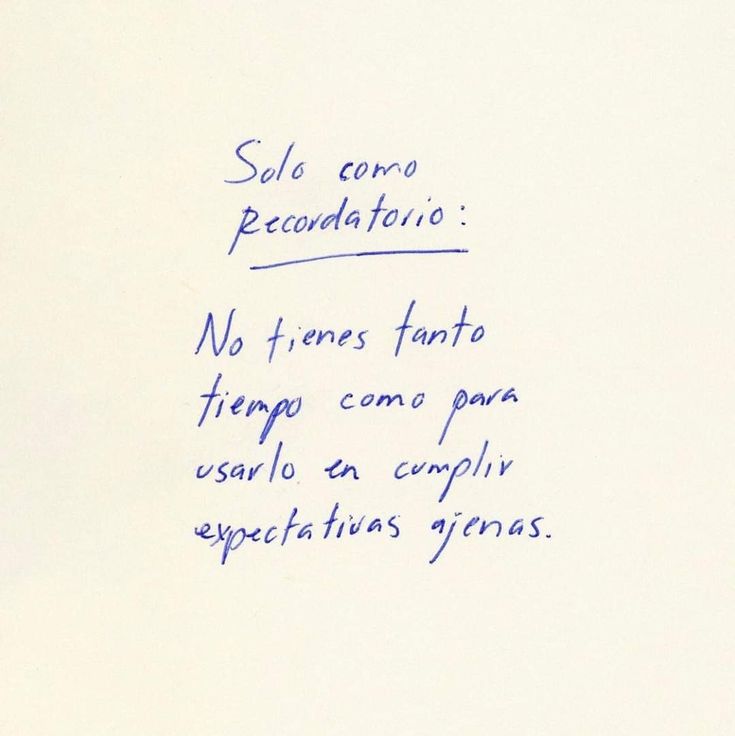 Solo como
Recordatorio:
No tienes tanto
tiempo como para
usarlo en cumplir
expectativas ajenas.